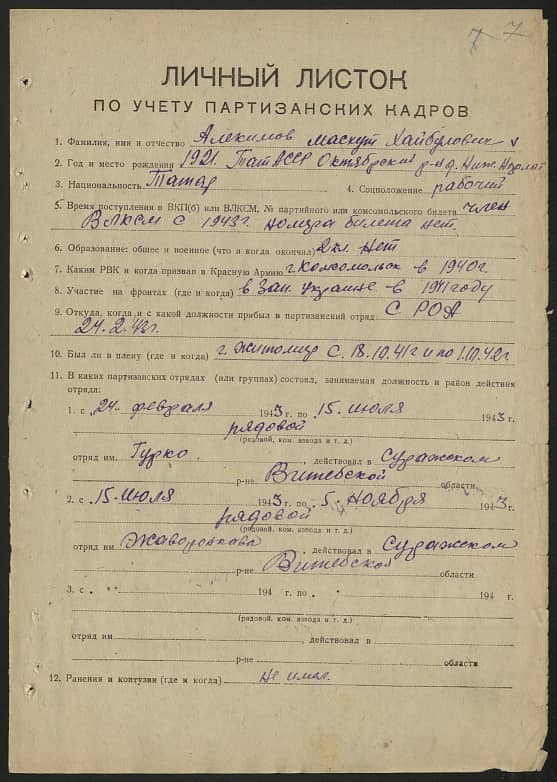 7 7
ЛИЧНЫЙ ЛИСТОК
ПО УЧЕТУ ПАРТИЗАНСКИХ КАДРОВ
1. Фамилия, имя и отчество Алекимов Маскут Хайбулович
2. Год и место рождения 1921. ТатАССР Октябрский р-н д. Ниж.
3. Национальность Татар 4. Соцположение рабочий
5. Время поступления в ВКП(б) или ВЛКСМ, № партийного или комсомольского билета член
ВЛКСМ с 1943г. номера билета нет.
6. Образование: общее и военное (что и когда окончил) 2кл. нет
7. Каким РВК и когда призван в Красную Армию г. Комсомольск в 1940г.
8. Участие на фронтах (где и когда) в Зап. Украине в 1941 году
9. Откуда, когда и с какой должности прибыл в партизанский отряд: с РОА
24.2.43г.
10. Был ли в плену (где и когда) г. Житомир с 18.10.41г и по 1.10.42г
11. В каких партизанских отрядах (или группах) состоял, занимаемая должность и район действия
отряда:
1. с „24„ февраля 1943 г. по „15„ июля 1943 г.
рядовой
(рядовой, ком. взвода и т. д.)
отряд им. Гурко , действовал в Суражском
р-не Витебской области
2. с „15„ июля 1943 г. по „5„ ноября 1943 г.
рядовой
(рядовой, ком. взвода и т. д.)
отряд им. Жаворонкава , действовал в Суражском
р-не Витебской области
3. с „ “ 194 г. по „ “ 194 г.
(рядовой, ком. взвода и т. д.)
отряд им. , действовал в
р-не области
12. Ранения и контузии (где и когда) не имел.